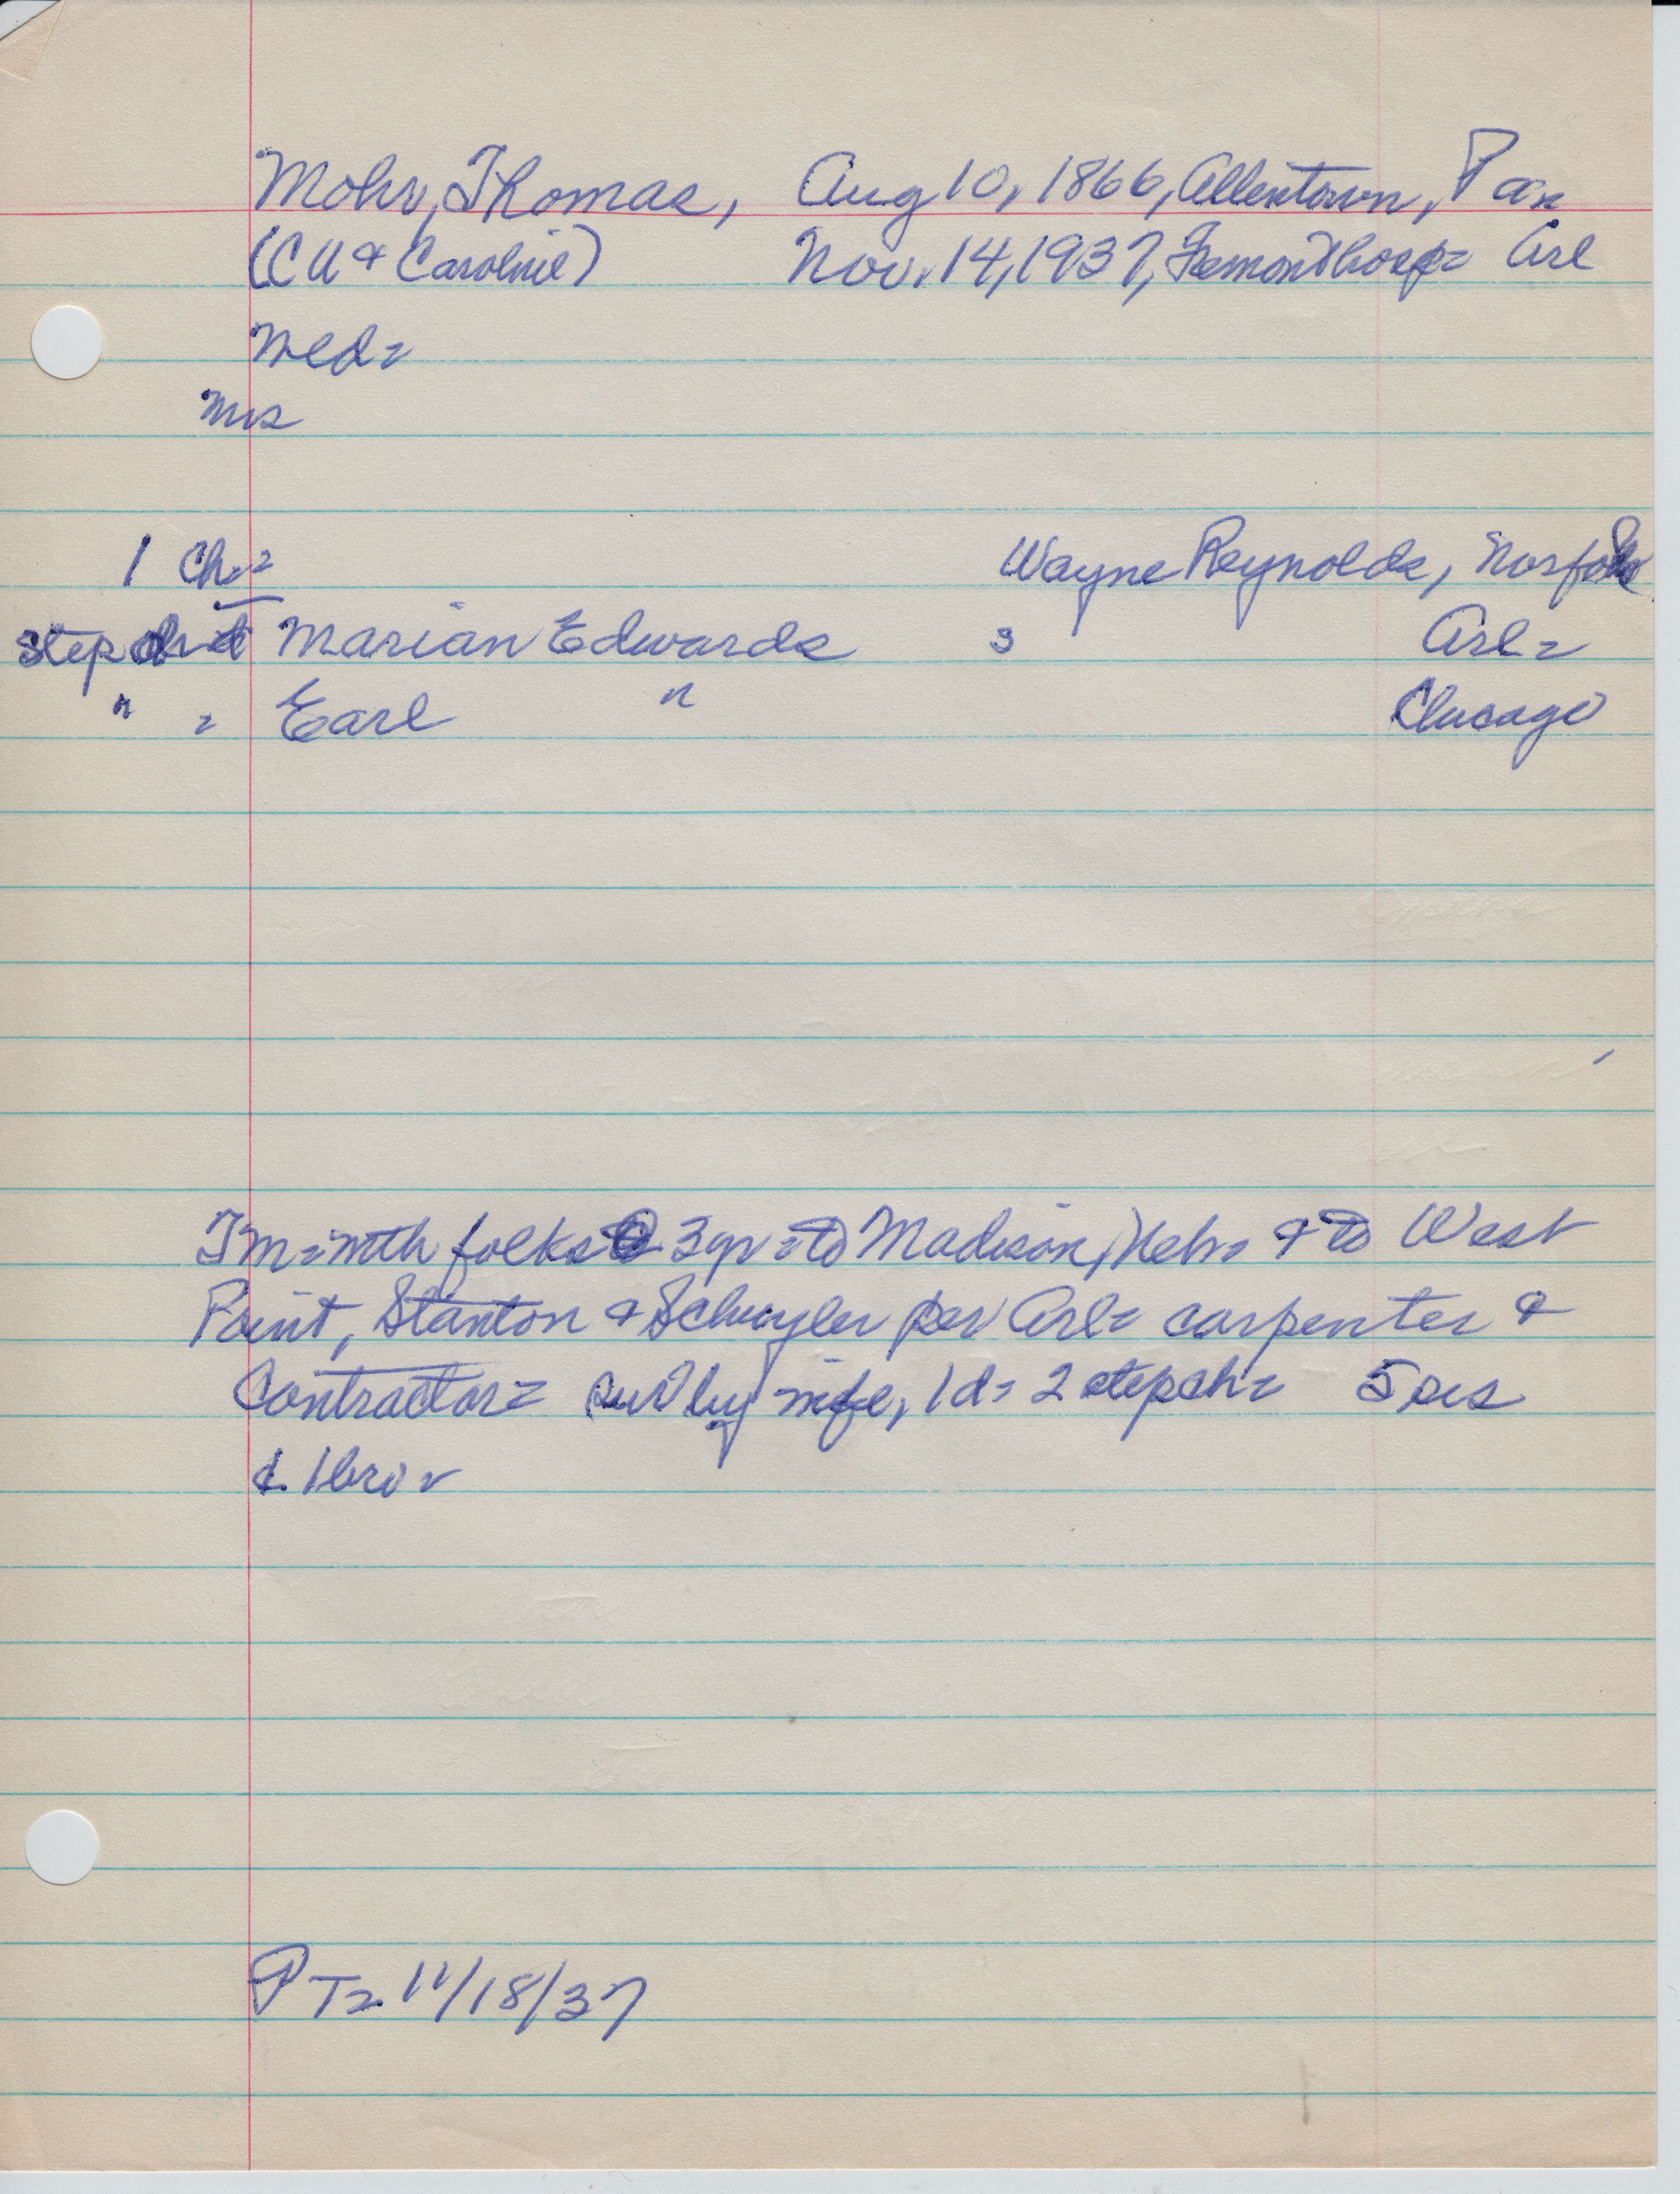 Mohr, Thomas, Aug 10, 1866, Allentown, Pa=
(C U & Caroline) Nov. 14, 1937, Fremont hosp= Arl
Wed=
Mrs
1 Ch= Wayne Reynolds, Norfolk
step Marian Edwards s Arl=
" = Earl " Chicago
TM= with folks @ 3 yr = to Madison, Neb= & to West
Point, Stanton & Schuyler Arl= carpenter &
Contractor= surv by wife, 1 d= 2 step ch= 5 sis
& 1 bro=
PT= 11/18/37